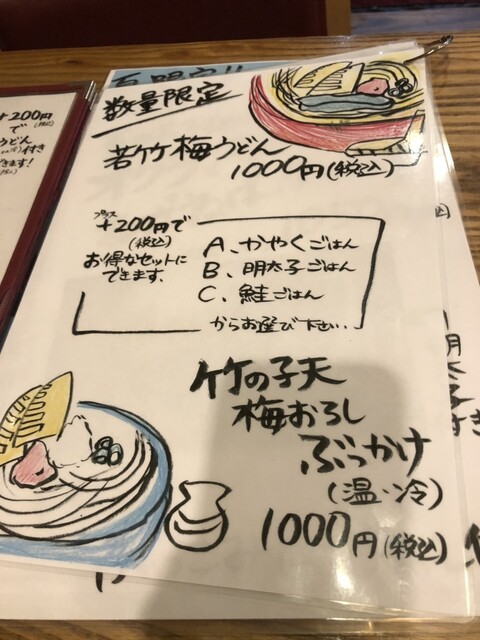 数量限定
若竹梅うどん
1000円(税込)
プラス
+200円で
(税込)
お得なセットに
できます.
A、かやくごはん
B、明太子ごはん
C、鮭ごはん
からお選び下さい..
竹の子天
梅おろし
ぶっかけ
(温・冷)
1000円(税込)
+200円
で(税込)
うどん
付き
できます!
明
太
子